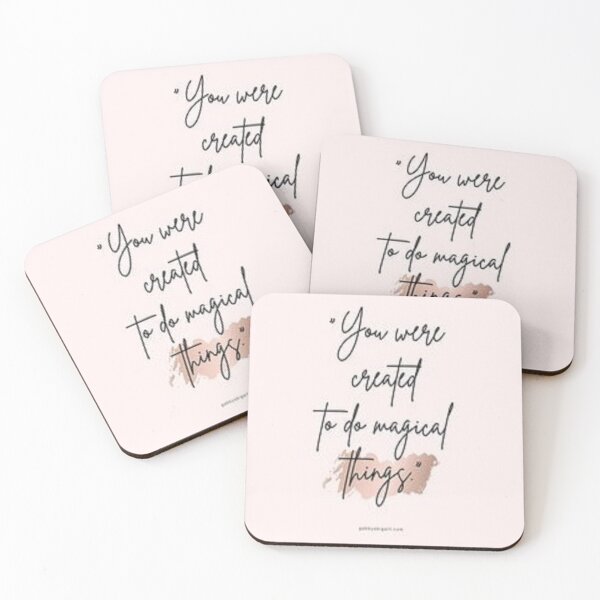 "You were
created
to do magical
"You were
created
to do magical
things."
"You were
created
to do magical
things."
"You were
created
to do magical
things."